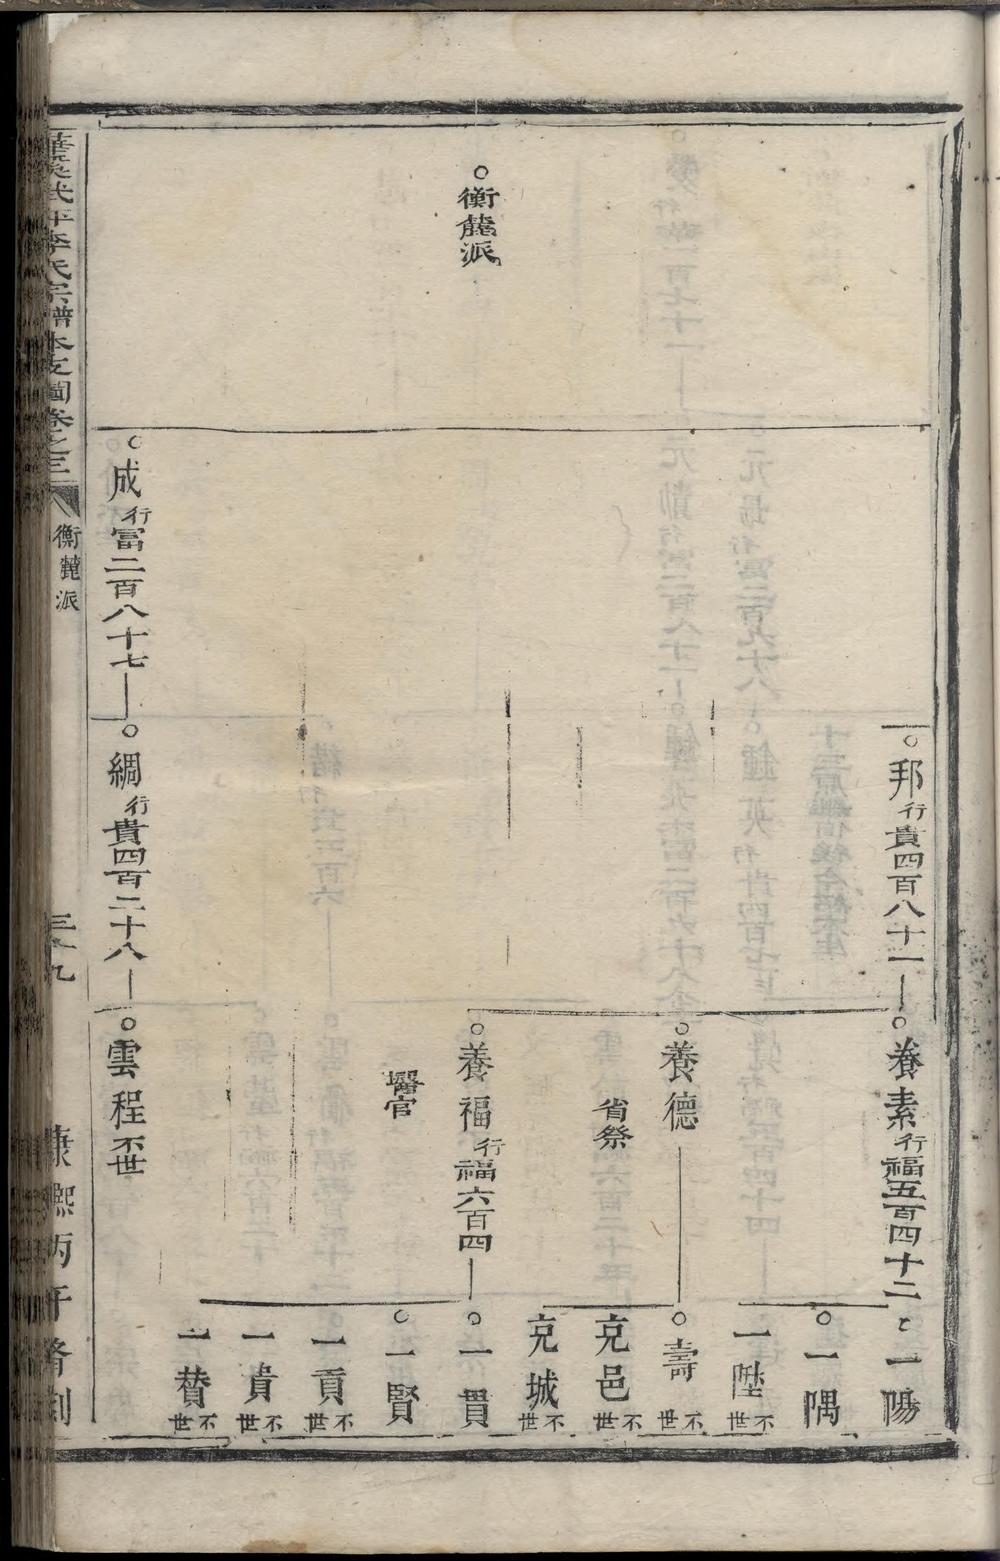 衡麓派
邦行貴四百八十一
養素行福五百四十二
一陽
一隅
一陞不世
養德
壽不世
省祭
克邑不世
克城不世
養福行福六百四
一貫
醫官
一賢
一貢不世
一貴不世
一贊不世
成行富二百八十七
綢行貴四百二十八
雲程不世
武平李氏宗譜本支圖卷之三
衡麓派
三十九
康熙丙午脊刻